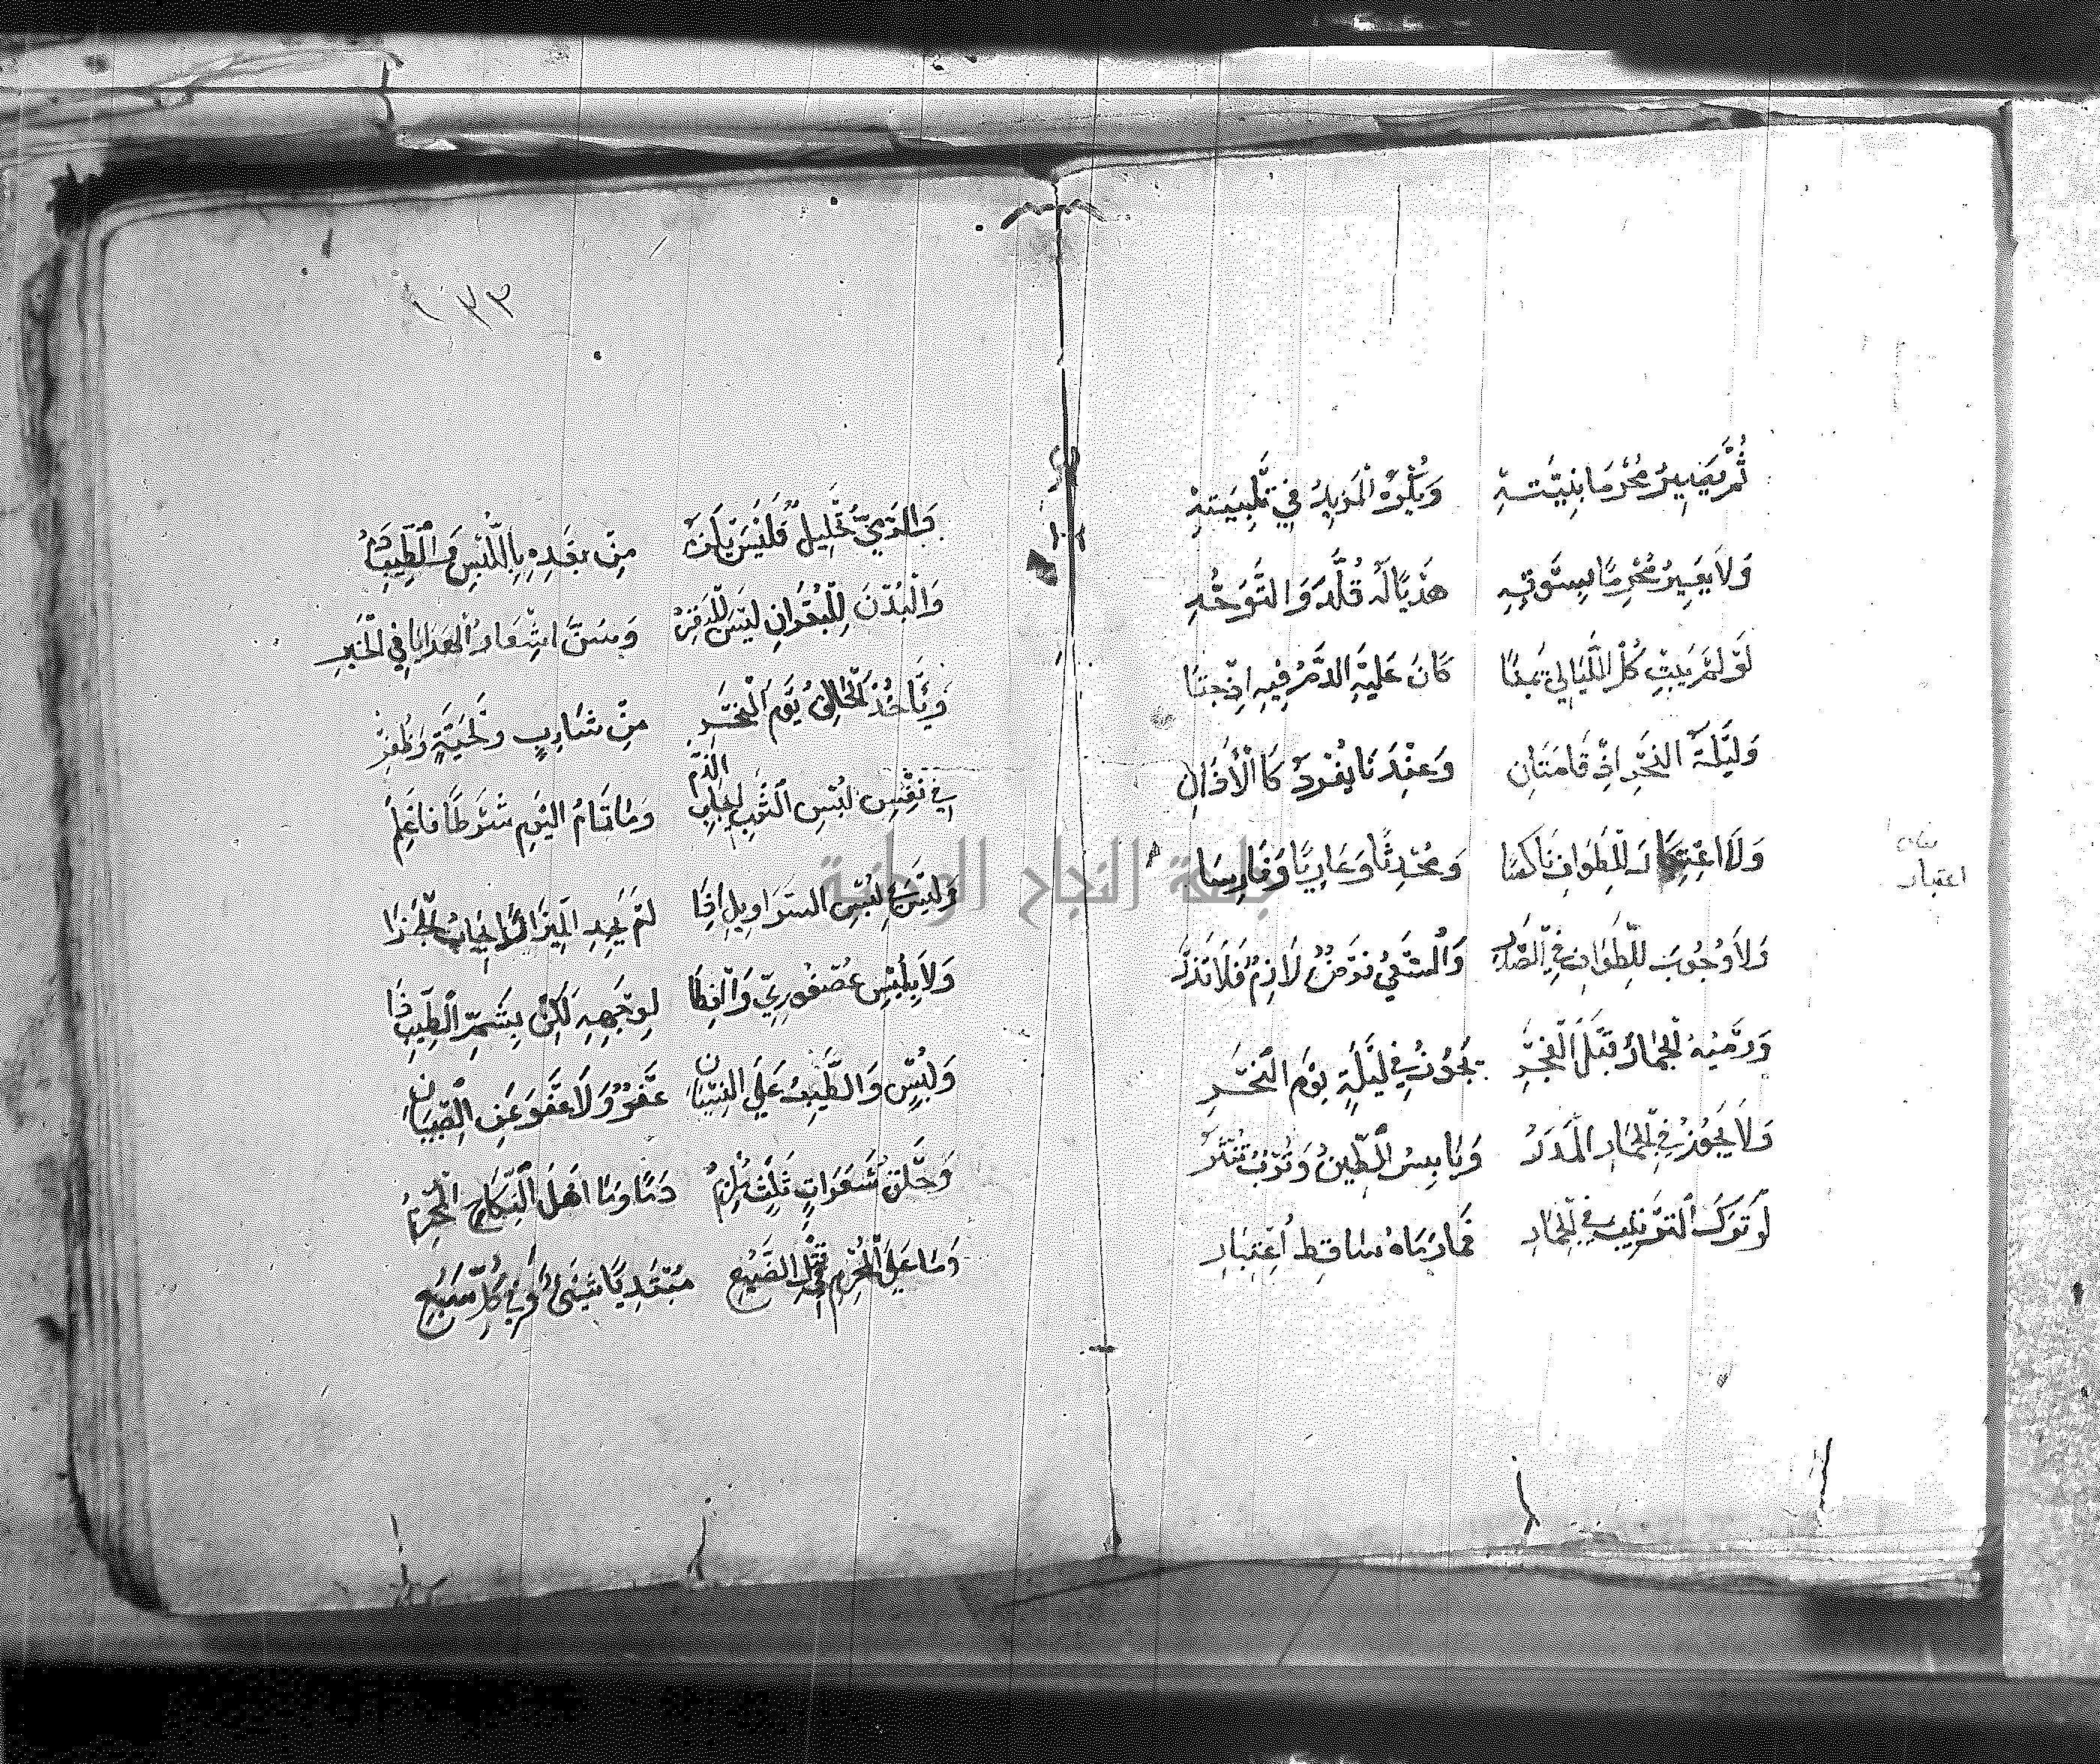 ثُمَّ يَصِيرُ مُحْرِمًا بِنِيَّتِهِ وَيُكْرَهُ الْمَزِيدُ فِي تَلْبِيَتِهِ
وَلَا يَصِيرُ مُحْرِمًا بِسَوْقِهِ هَدْيًا لَهُ قُلِّدَ وَالتَّوَجُّهِ
لَوْ لَمْ يَبِتْ كُلَّ اللَّيَالِي بِمِنًا كَانَ عَلَيْهِ الدَّمُ فِيهِ اِذْ جَنَا
وَلَيْلَةَ النَّحْرِ اِذًا قَامَتَانِ وَعِنْدَنَا يُفْرَدُ كَالْأَذَانِ
وَلَا اعْتِبَارَ لِلطَّوَافِ نَاكِسًا وَمُحْدِثًا وَعَارِيًا وَفَارِسًا
اعتبار
وَلَا وُجُوبَ لِلطَّوَافِ فِي الصَّدَرِ وَالسَّعْيُ فَرْضٌ لَازِمٌ فَلَا تَذَرْ
وَرَمْيُهُ الْجِمَارَ قَبْلَ الْفَجْرِ يَجُوزُ فِي لَيْلَةِ يَوْمِ النَّحْرِ
وَلَا يَجُوزُ فِي الْجِمَارِ الْمَدَرُ وَيَابِسُ الطِّينِ وَتُرْبٌ تُنْثَرُ
لَوْ تَرَكَ التَّرْتِيبَ فِي الْجِمَارِ فَمَا رَمَاهُ سَاقِطُ اعْتِبَارِ
١٣٢
بِالرَّمْيِ تَحْلِيلٌ فَلَيْسَ يَلْزَمُ مِنْ بَعْدِهِ بِاللُّبْسِ وَالطِّيبِ دَمُ
وَالْبُدْنَ لِلْبُعْرَانِ لَيْسَ لِلْبَقَرْ وَسُنَّ اشْعَارُ الْهَدَايَا فِي الْخَبَرِ
وَيَأْخُذُ الْحَالِقُ يَوْمَ النَّحْرِ مِنْ شَارِبٍ وَلِحْيَةٍ وَظُفْرِ
فِي نَفْسِ لُبْسِ الثَّوْبِ اِيجَابُ الدَّمِ وَمَا تَمَامُ الْيَوْمِ شَرْطًا فَاعْلَمِ
وَلَيْسَ فِي لُبْسِ السَّرَاوِيلِ اِذَا لَمْ يَجِدِ الْمِيزَارَ اِيجَابُ الْجَزَا
وَلَا يَلْبَسِ عُصْفُورِيَّ وَالْغِطَا لِوَجْهِهِ لَكِنْ بِشَمِّ الطِّيبِ ذَا
وَلُبْسِ وَالطِّيبُ عَلَى النِّسْيَانِ عَفْوٌ وَلَا عَفْوَ عَنِ الصِّبْيَانِ
وَحَلْقُ شَعَرَاتٍ ثَلَثٍ يُلْزِمُ دَمًا وَمَا اَهْلَ النِّكَاحِ الْمُحْرِمُ
وَمَا عَلَى الْمُحْرِمِ قَتْلُ الضَّبُعِ مُبْتَدِيًا شَيْئٌ وَفِي كُلِّ سَبُعِ
جامعة النجاح الوطنية